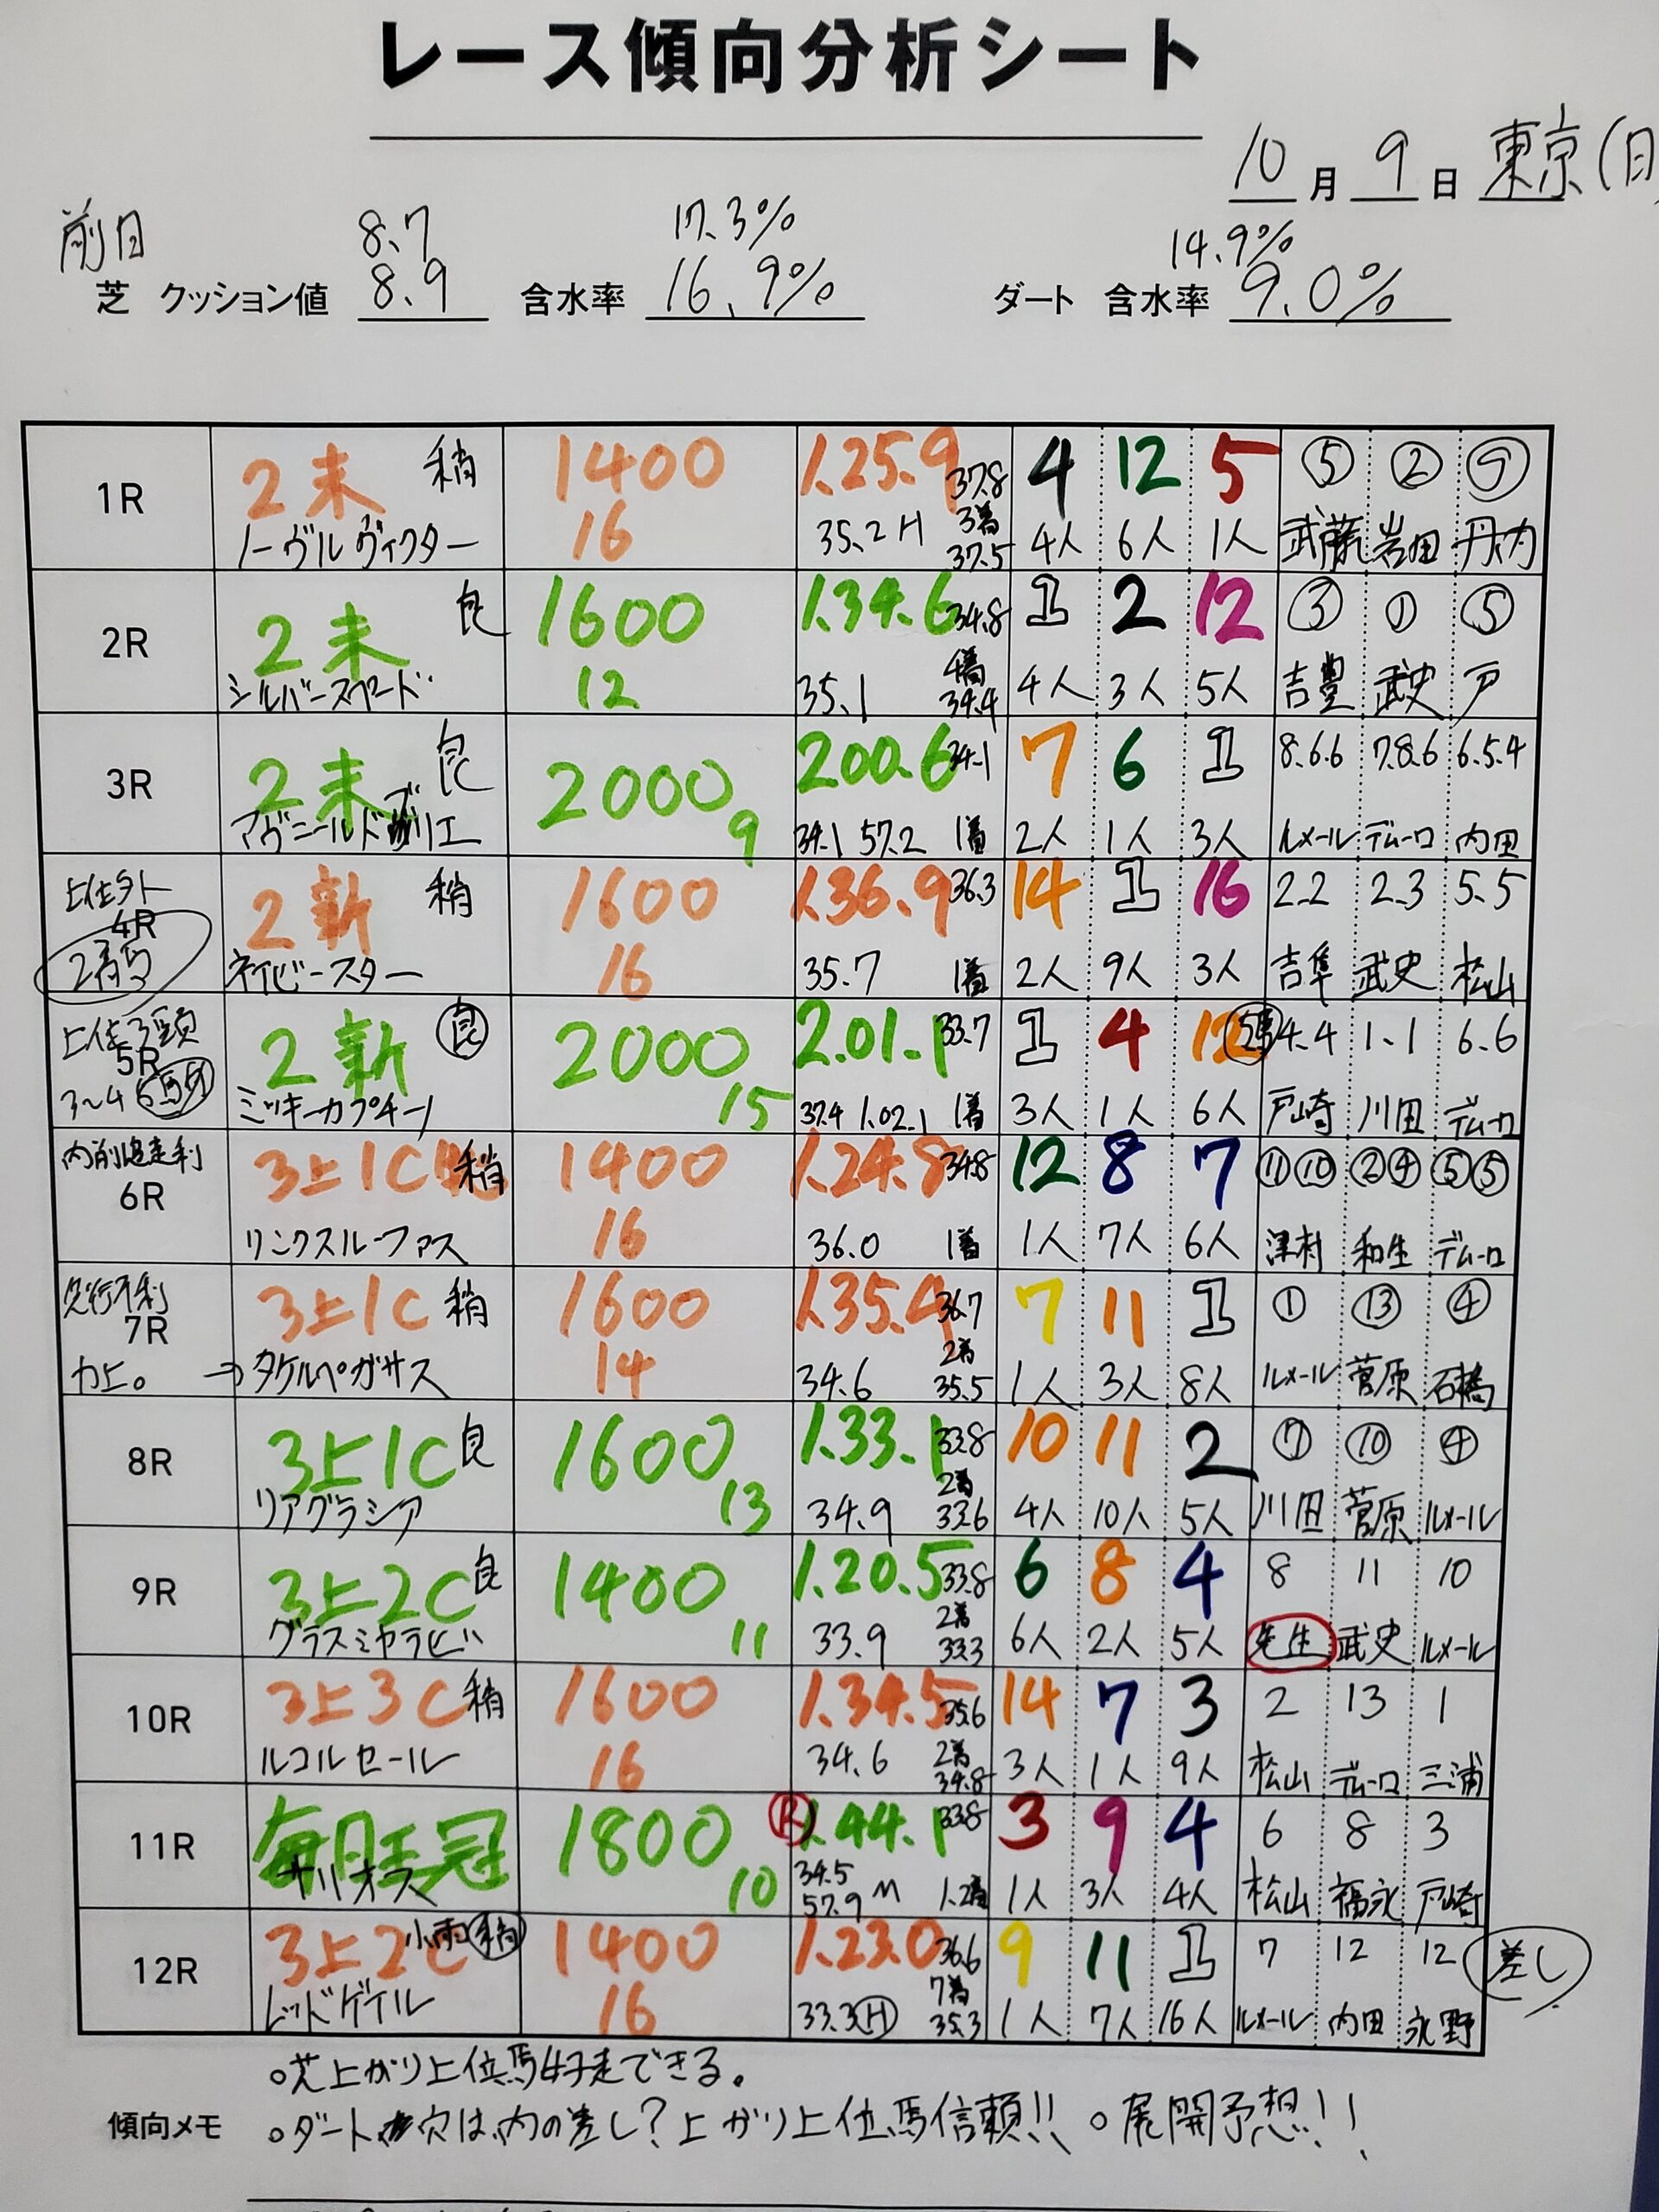 レース傾向分析シート
10月9日 東京(日)
前日 8.7 17.3% 14.9%
芝 クッション値 8.9 含水率 16.9% ダート 含水率 9.0%
1R 2未 稍 1400 1.25.9 37.8 4 12 5 ⑤ ② ⑨
ノーヴルヴィクター 16 35.2H 3着 37.5 4人 6人 1人 武藤 岩田 丹内
2R 2未 良 1600 1.34.6 34.8 1 2 12 ③ ① ⑤
シルバースペード 12 35.1 4着 34.4 4人 3人 5人 吉豊 武史 戸
3R 2未 良 2000 2.00.6 34.1 7 6 1 8.6.6 7.8.6 6.5.4
アヴニールドブリエ 9 34.1 57.2 1着 2人 1人 3人 ルメール デムーロ 内田
上位外
4R 2新 稍 1600 1.36.9 36.3 14 1 16 2.2 2.3 5.5
ネイビースター 16 35.7 1着 2人 9人 3人 吉隼 武史 松山
上位3頭
5R 2新 良 2000 2.01.1 33.7 1 4 12 4.4 1.1 6.6
3〜4 ミッキーカプチーノ 15 37.4 1.02.1 1着 3人 1人 6人 戸崎 川田 デムーロ
6R 3上1C 稍 1400 1.24.8 34.8 12 8 7 ⑪⑩ ②④ ⑤⑤
リンクスルーファス 16 36.0 1着 1人 7人 6人 津村 和生 デムーロ
先行不利
7R 3上1C 稍 1600 1.35.4 36.7 7 11 1 ① ⑬ ④
力上。 → タケルペガサス 14 34.6 2着 35.5 1人 3人 8人 ルメール 菅原 石橋
8R 3上1C 良 1600 1.33.1 33.8 10 11 2 ⑦ ⑩ ④
リアグラシア 13 34.9 2着 33.6 4人 10人 5人 川田 菅原 ルメール
9R 3上2C 良 1400 1.20.5 33.8 6 8 4 8 11 10
グラスミヤラビ 11 33.9 2着 33.3 6人 2人 5人 先生 武史 ルメール
10R 3上3C 稍 1600 1.34.5 35.6 14 7 3 2 13 1
ルコルセール 16 34.6 2着 34.8 3人 1人 9人 松山 デムーロ 三浦
11R 毎日王冠 1800 Ⓡ 1.44.1 33.8 3 9 4 6 8 3
サリオス 10 34.5 57.9 M 1.2着 1人 3人 4人 松山 福永 戸崎
12R 3上2C 小雨 稍 1400 1.23.0 36.6 9 11 1 7 12 12 差し
レッドゲイル 16 33.3Ⓗ 7着 35.3 1人 7人 16人 ルメール 内田 永野
。芝上がり上位馬好走できる。
傾向メモ 。ダート穴は、内の差し?上がり上位馬信頼!! 。展開予想!!